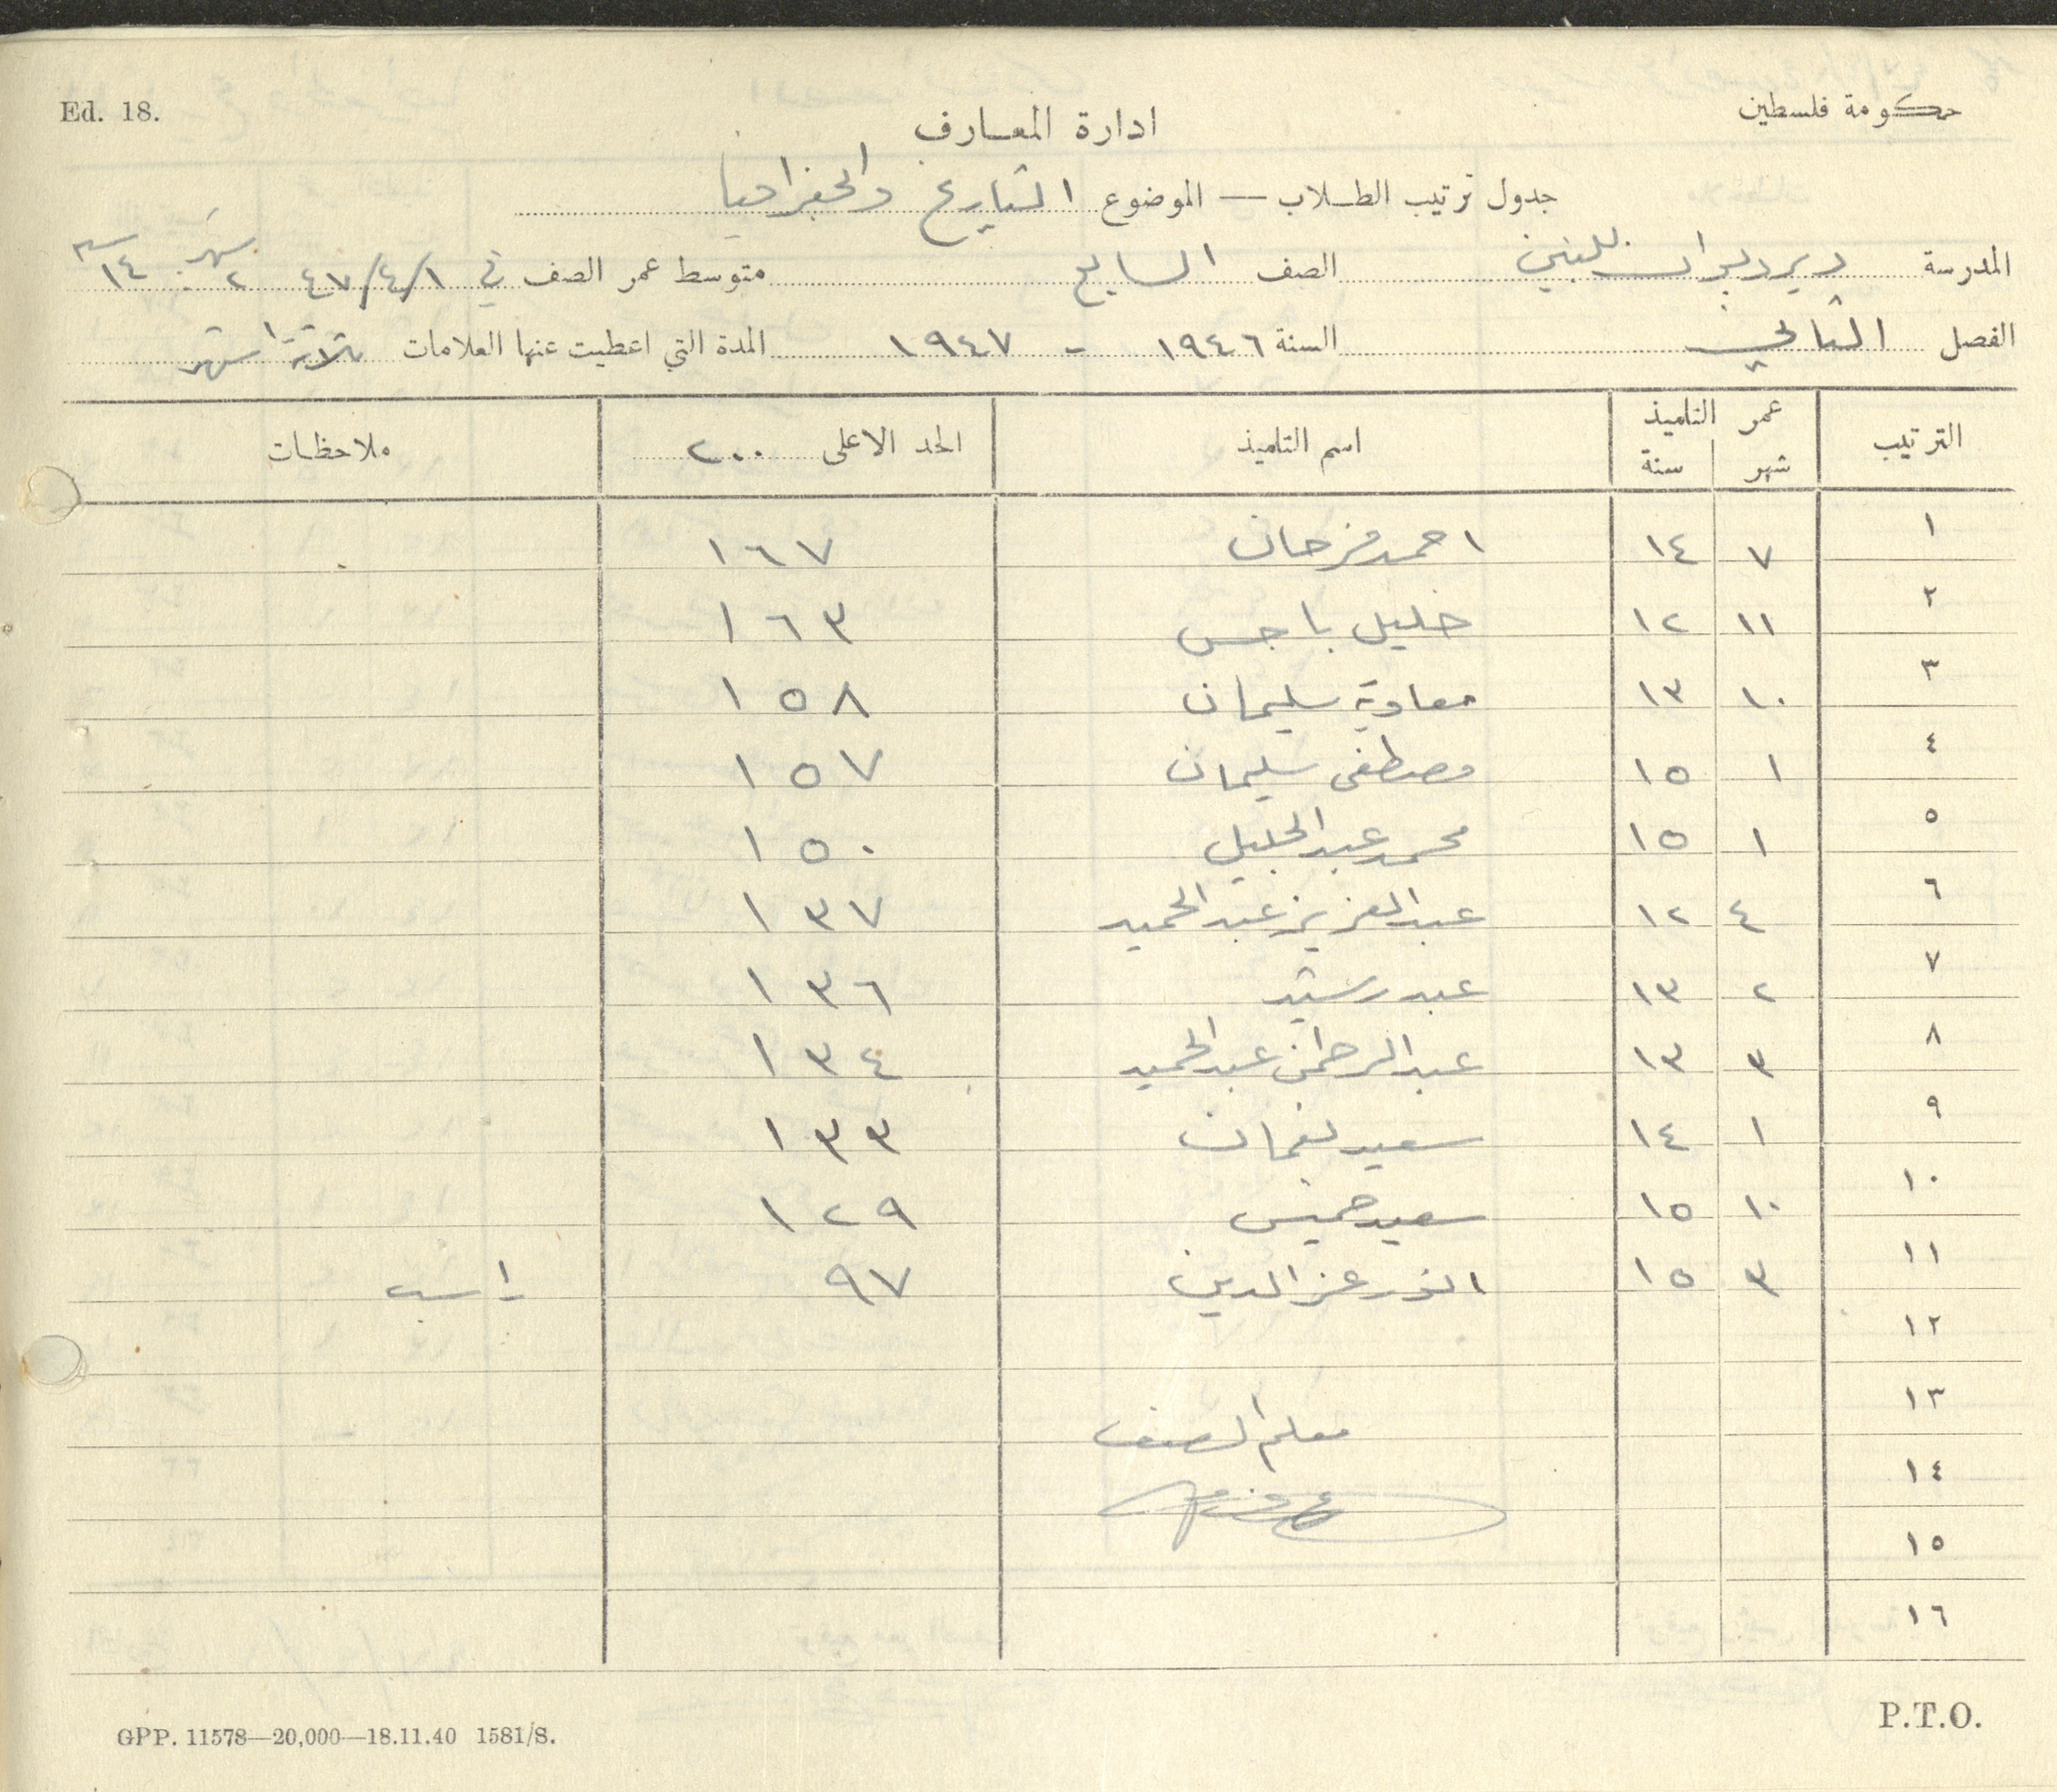 Ed. 18.
حكومة فلسطين
ادارة المعارف
جدول ترتيب الطلاب — الموضوع التاريخ والجغرافيا
المدرسة ديردبوان للبنين الصف السابع متوسط عمر الصف في ٤٧/٤/١ ٢ شهر ١٤ سنه
الفصل الثاني السنة ١٩٤٦ - ١٩٤٧ المدة التي اعطيت عنها العلامات ثلاثة اشهر
الترتيب عمر التلميذ شهر سنة اسم التلميذ الحد الاعلى ٢٠٠ ملاحظات
١ ٧ ١٤ احمد فرحان ١٦٧
٢ ١١ ١٢ خليل باجس ١٦٣
٣ ١٠ ١٣ معاوية سليمان ١٥٨
٤ ١ ١٥ مصطفى سليمان ١٥٧
٥ ١ ١٥ محمد عبد الجليل ١٥٠
٦ ٤ ١٢ عبد العزيز عبد الحميد ١٣٧
٧ ٢ ١٣ عبد رشيد ١٣٦
٨ ٣ ١٣ عبد الرحمن عبد الحميد ١٣٤
٩ ١ ١٤ سعيد نعمان ١٣٣
١٠ ١٠ ١٥ سعيد خميس ١٢٩
١١ ٣ ١٥ انور عز الدين ٩٧ راسب
١٢
١٣ معلم الصف
١٤
١٥
١٦
GPP. 11578—20,000—18.11.40 1581/S.
P.T.O.